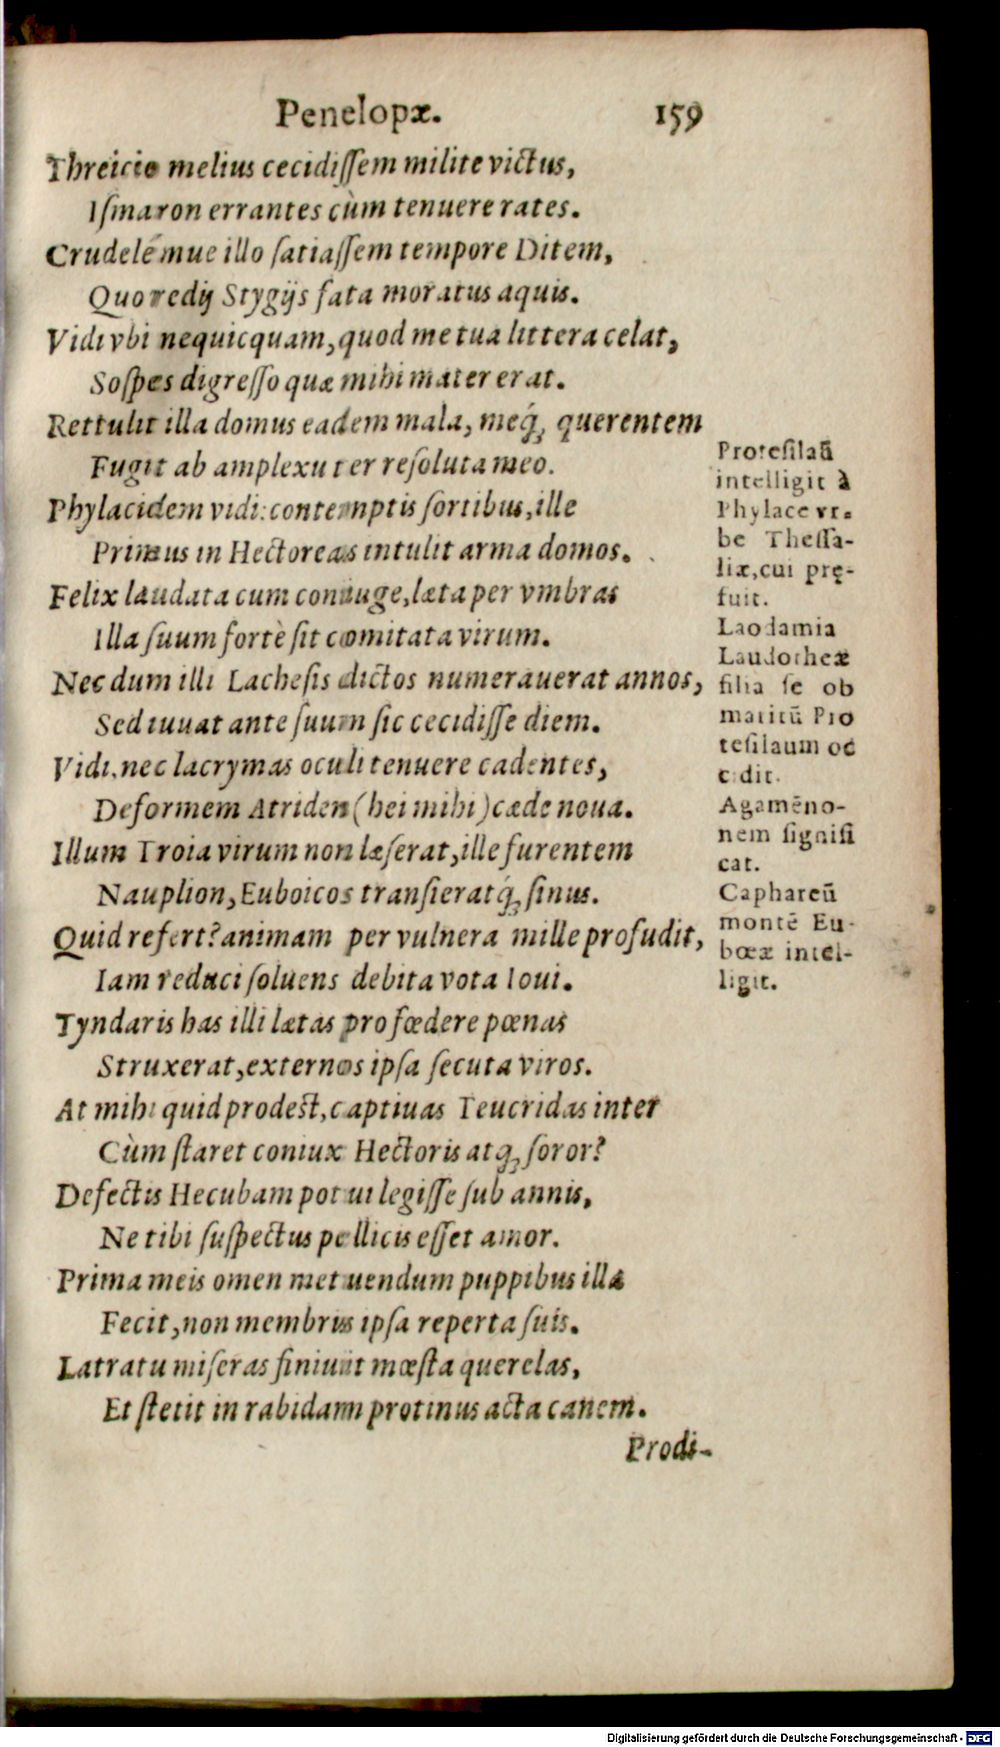 Penelopæ. 159
Threicio melius cecidiſſem milite victus,
Iſmaron errantes cùm tenuere rates.
Crudelémue illo ſatiaſſem tempore Ditem,
Quo redij Stygijs fata moratus aquis.
Vidi vbi nequicquam, quod me tua littera celat,
Soſpes digreſſo quæ mihi mater erat.
Rettulit illa domus eadem mala, meq́; querentem
Fugit ab amplexu ter reſoluta meo.
Phylacidem vidi: contemptis ſortibus, ille
Primus in Hectoreas intulit arma domos.
Felix laudata cum coniuge, læta per vmbras
Illa ſuum fortè ſit comitata virum.
Nec dum illi Lacheſis dictos numerauerat annos,
Sed iuuat ante ſuum ſic cecidiſſe diem.
Vidi, nec lacrymas oculi tenuere cadentes,
Deformem Atriden (hei mihi) cæde noua.
Illum Troia virum non læſerat, ille furentem
Nauplion, Euboicos tranſieratq́; ſinus.
Quid refert? animam per vulnera mille profudit,
Iam reduci ſoluens debita vota Ioui.
Tyndaris has illi lætas pro fœdere pœnas
Struxerat, externos ipſa ſecuta viros.
At mihi quid prodeſt, captiuas Teucridas inter
Cùm ſtaret coniux Hectoris atq; ſoror?
Defectis Hecubam potui legiſſe ſub annis,
Ne tibi ſuſpectus pellicis eſſet amor.
Prima meis omen metuendum puppibus illa
Fecit, non membris ipſa reperta ſuis.
Latratu miſeras finiuit mœſta querelas,
Et ſtetit in rabidam protinus acta canem.
Prodi-
Proteſilaū
intelligit à
Phylace vr-
be Theſſa-
liæ, cui prę-
fuit.
Laodamia
Laudotheæ
filia ſe ob
maritū Pro
teſilaum oc
cidit.
Agamēno-
nem ſignifi
cat.
Caphareū
montē Eu-
bœæ intel-
ligit.
Digitalisierung gefördert durch die Deutsche Forschungsgemeinschaft - DFG